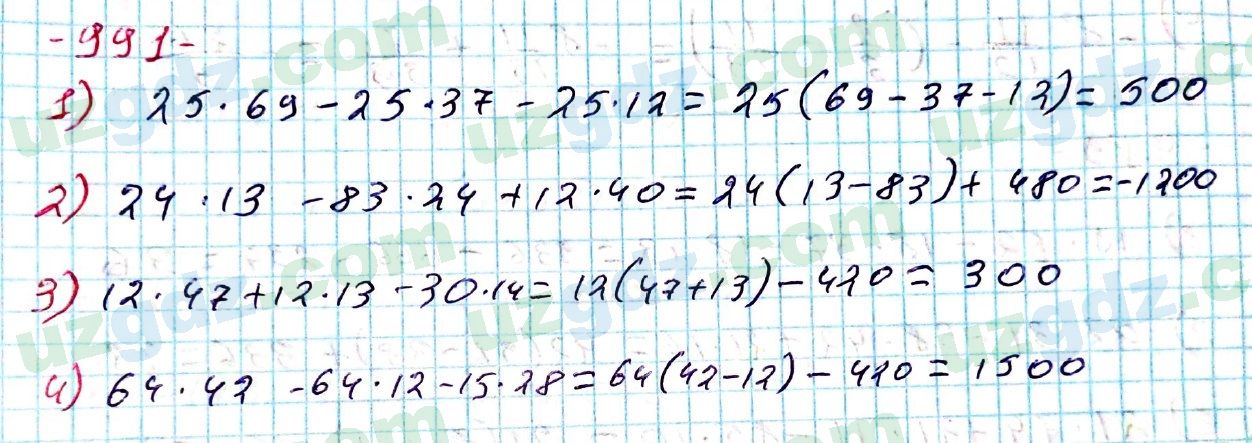 -991-
1) 25·69-25·37-25·12=25(69-37-12)=500
2) 24·13-83·24+12·40=24(13-83)+480=-1200
3) 12·47+12·13-30·14=12(47+13)-420=300
4) 64·42-64·12-15·28=64(42-12)-420=1500